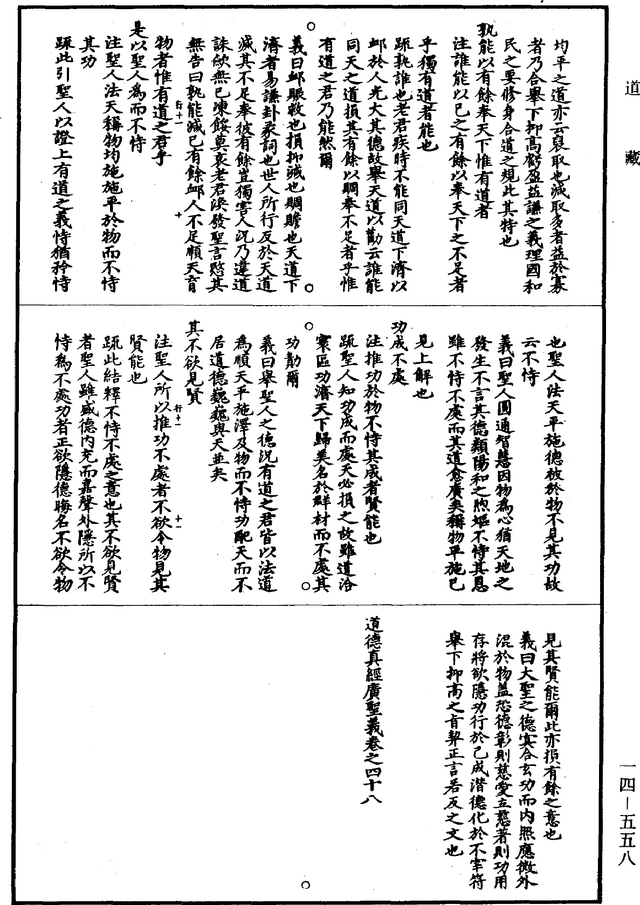 道藏
均平之道亦云裒取也減取多者益於寡
者乃合舉下抑高虧盈益謙之義理國和
民之要修身合道之規此其特也
孰能以有餘奉天下惟有道者
注誰能以己之有餘以奉天下之不足者
乎獨有道者能也
疏孰誰也老君疾時不能同天道下濟以
卹於人光大其德故舉天道以勸云誰能
同天之道損其有餘以賙奉不足者乎惟
有道之君乃能然爾
義曰卹賑救也損抑減也賙贍也天道下
濟者易謙卦彖詞也世人所行反於天道
減其不足奉彼有餘豈獨害人況乃違道
誅歛無已凍餒莫哀老君誒發聖言愍其
無告曰孰能減己有餘卹人不足順天育
物者惟有道之君乎
是以聖人為而不恃
注聖人法天稱物均施施平於物而不恃
其功
疏此引聖人以證上有道之義恃猶矜恃
也聖人法天平施德被於物不見其功故
云不恃
義曰聖人圓通智慧因物為心猶天地之
發生不言其德類陽和之煦嫗不恃其恩
雖不恃不處而其道愈廣矣稱物平施已
見上解也
功成不處
注推功於物不恃其成者賢能也
疏聖人知功成而處天必損之故雖道洽
寰區功濟天下歸美名於群材而不處其
功勛爾
義曰舉聖人之德況有道之君皆以法道
為順天平施澤及物而不恃功配天而不
居道德巍巍與天並矣
其不欲見賢
注聖人所以推功不處者不欲令物見其
賢能也
疏此結釋不恃不處之意也其不欲見賢
者聖人雖盛德內充而嘉聲外隱所以不
恃為不處功者正欲隱德晦名不欲令物
見其賢能爾此亦損有餘之意也
義曰大聖之德寞合玄功而內照應微外
混於物蓋恐德彰則慈愛立慈著則功用
存將欲隱功行於己成潛德化於不宰符
舉下抑高之旨契正言若反之文也
道德真經廣聖義卷之四十八
一四—五五八